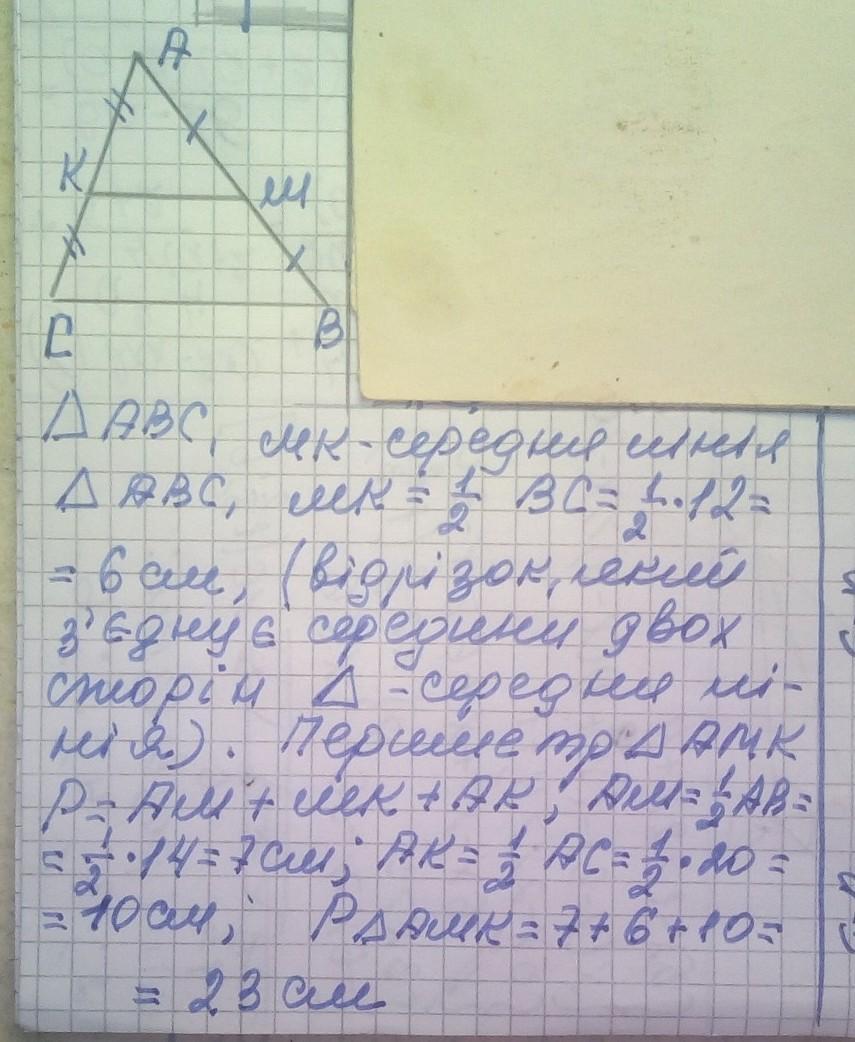 A
K M
C B
Δ ABC, MK - середня лінія
Δ ABC, MK = 1/2 BC = 1/2 · 12 =
= 6 см, (відрізок, який
з'єднує середини двох
сторін Δ - середня лі-
нія). Периметр Δ AMK
P = AM + MK + AK; AM = 1/2 AB =
= 1/2 · 14 = 7 см; AK = 1/2 AC = 1/2 · 20 =
= 10 см; P Δ AMK = 7 + 6 + 10 =
= 23 см